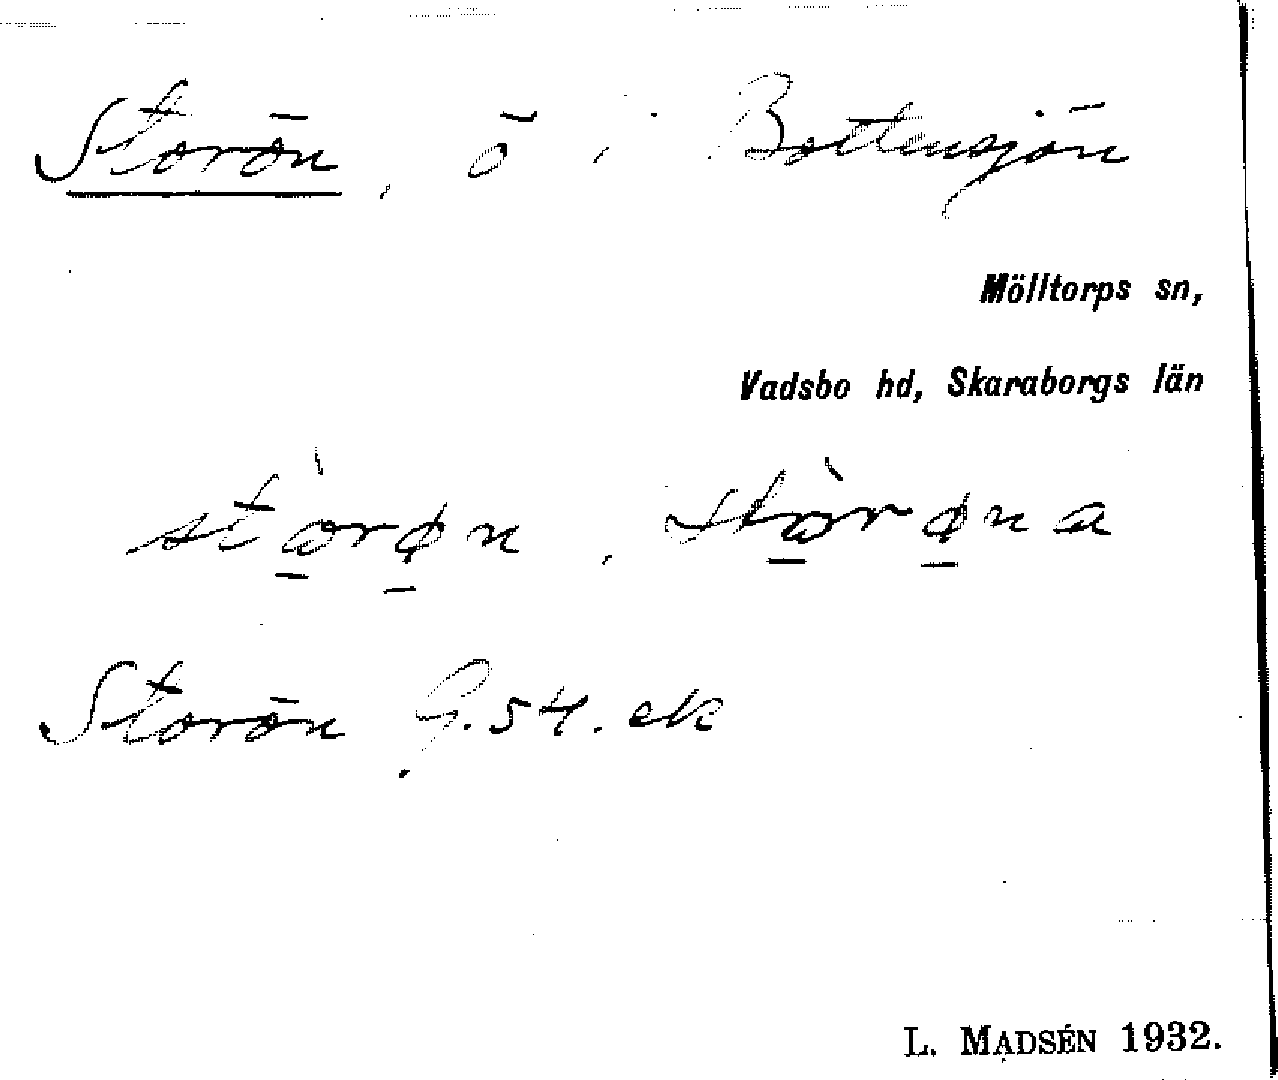 Storön, ö i Bottensjön
Mölltorps sn,
Vadsbo hd, Skaraborgs län
stòrøn, stòrøna
Storön G. 54. ek
L. MADSÉN 1932.